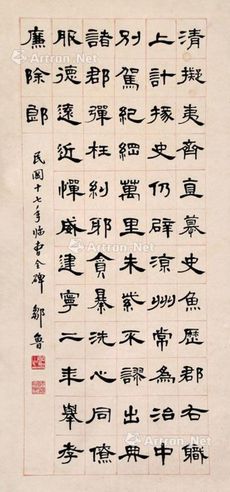 清擬夷齊直慕史魚歷郡右職
上計掾史仍辟涼州常為治中
別駕紀綱萬里朱紫不謬出典
諸郡彈枉糾邪貪暴洗心同僚
服德遠近憚威建寧二年舉孝
廉除郎
民國十七年臨曹全碑 鄒魯